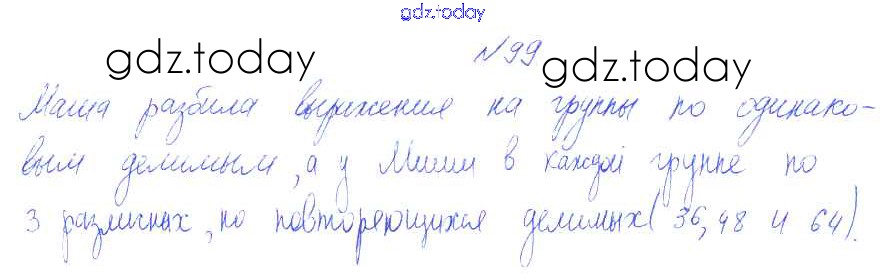 gdz.today
№99
gdz.today gdz.today
Маша разбила выражения на группы по одинако-
вым делимым, а у Миши в каждой группе по
3 различных, но повторяющихся делимых (36, 48 и 64).